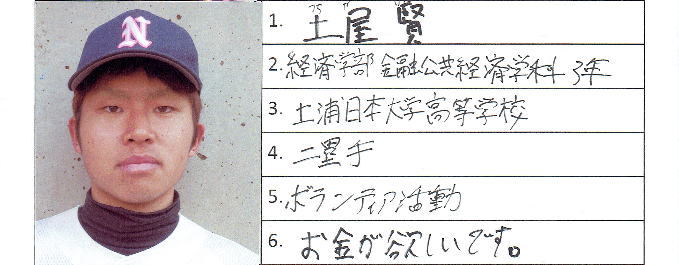 N
1. 土屋 賢
2. 経済学部 金融公共経済学科 3年
3. 土浦日本大学高等学校
4. 二塁手
5. ボランティア活動
6. お金が欲しいです。